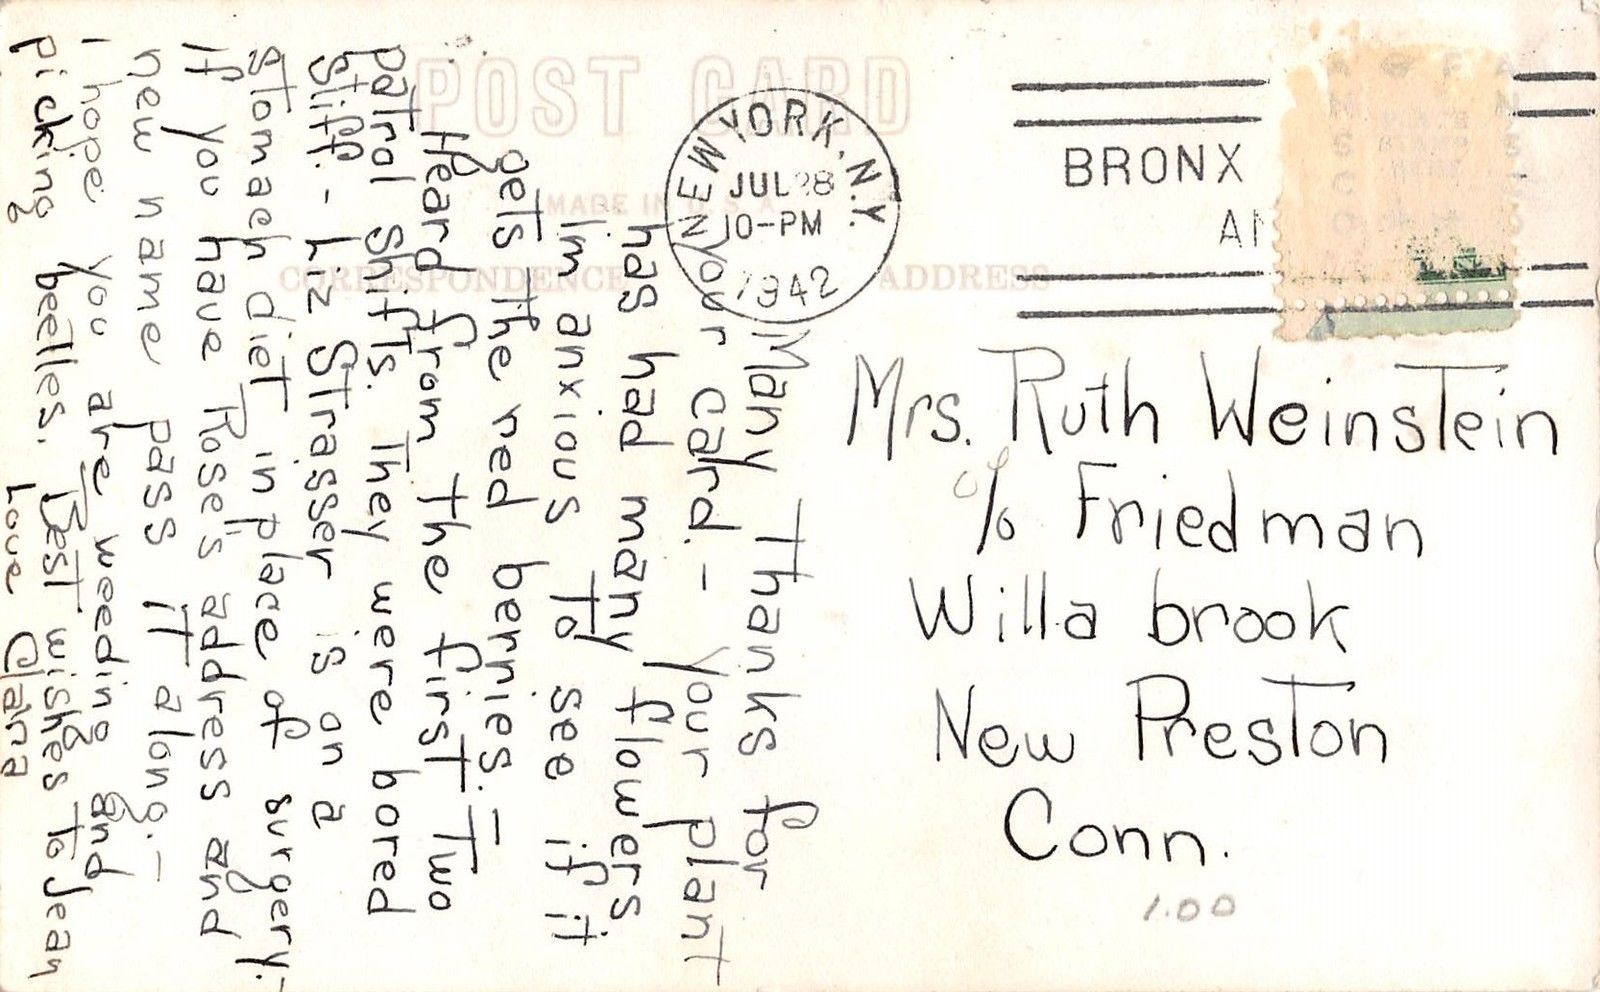 POST CARD
MADE IN U.S.A.
CORRESPONDENCE
ADDRESS
NEW YORK, N.Y.
JUL 28
10-PM
1942
BRONX
Many Thanks for
Your card. - Your plant
has had many flowers
Im anxious To see if it
gets The red berries. -
Heard from The first Two
patrol shifts. They were bored
stiff. - Liz Strasser is on a
stomach dieT in place of surgery. -
If you have Rose's address and
new name pass iT along. -
I hope you are weeding and
picking beetles. Best wishes To Jean
Love Clara
Mrs. Ruth Weinstein
c/o Friedman
Willa brook
New Preston
Conn.
1.00